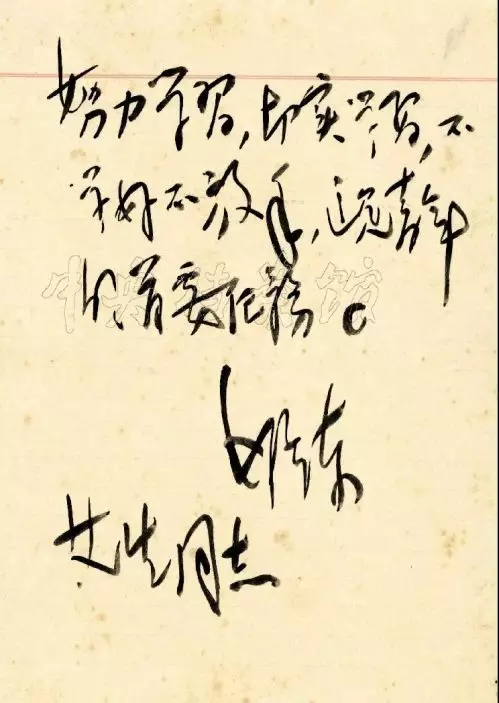 努力学习,切实学习,不
学好不放手,这是青年
的首要任务。
艾生同志
中央档案馆